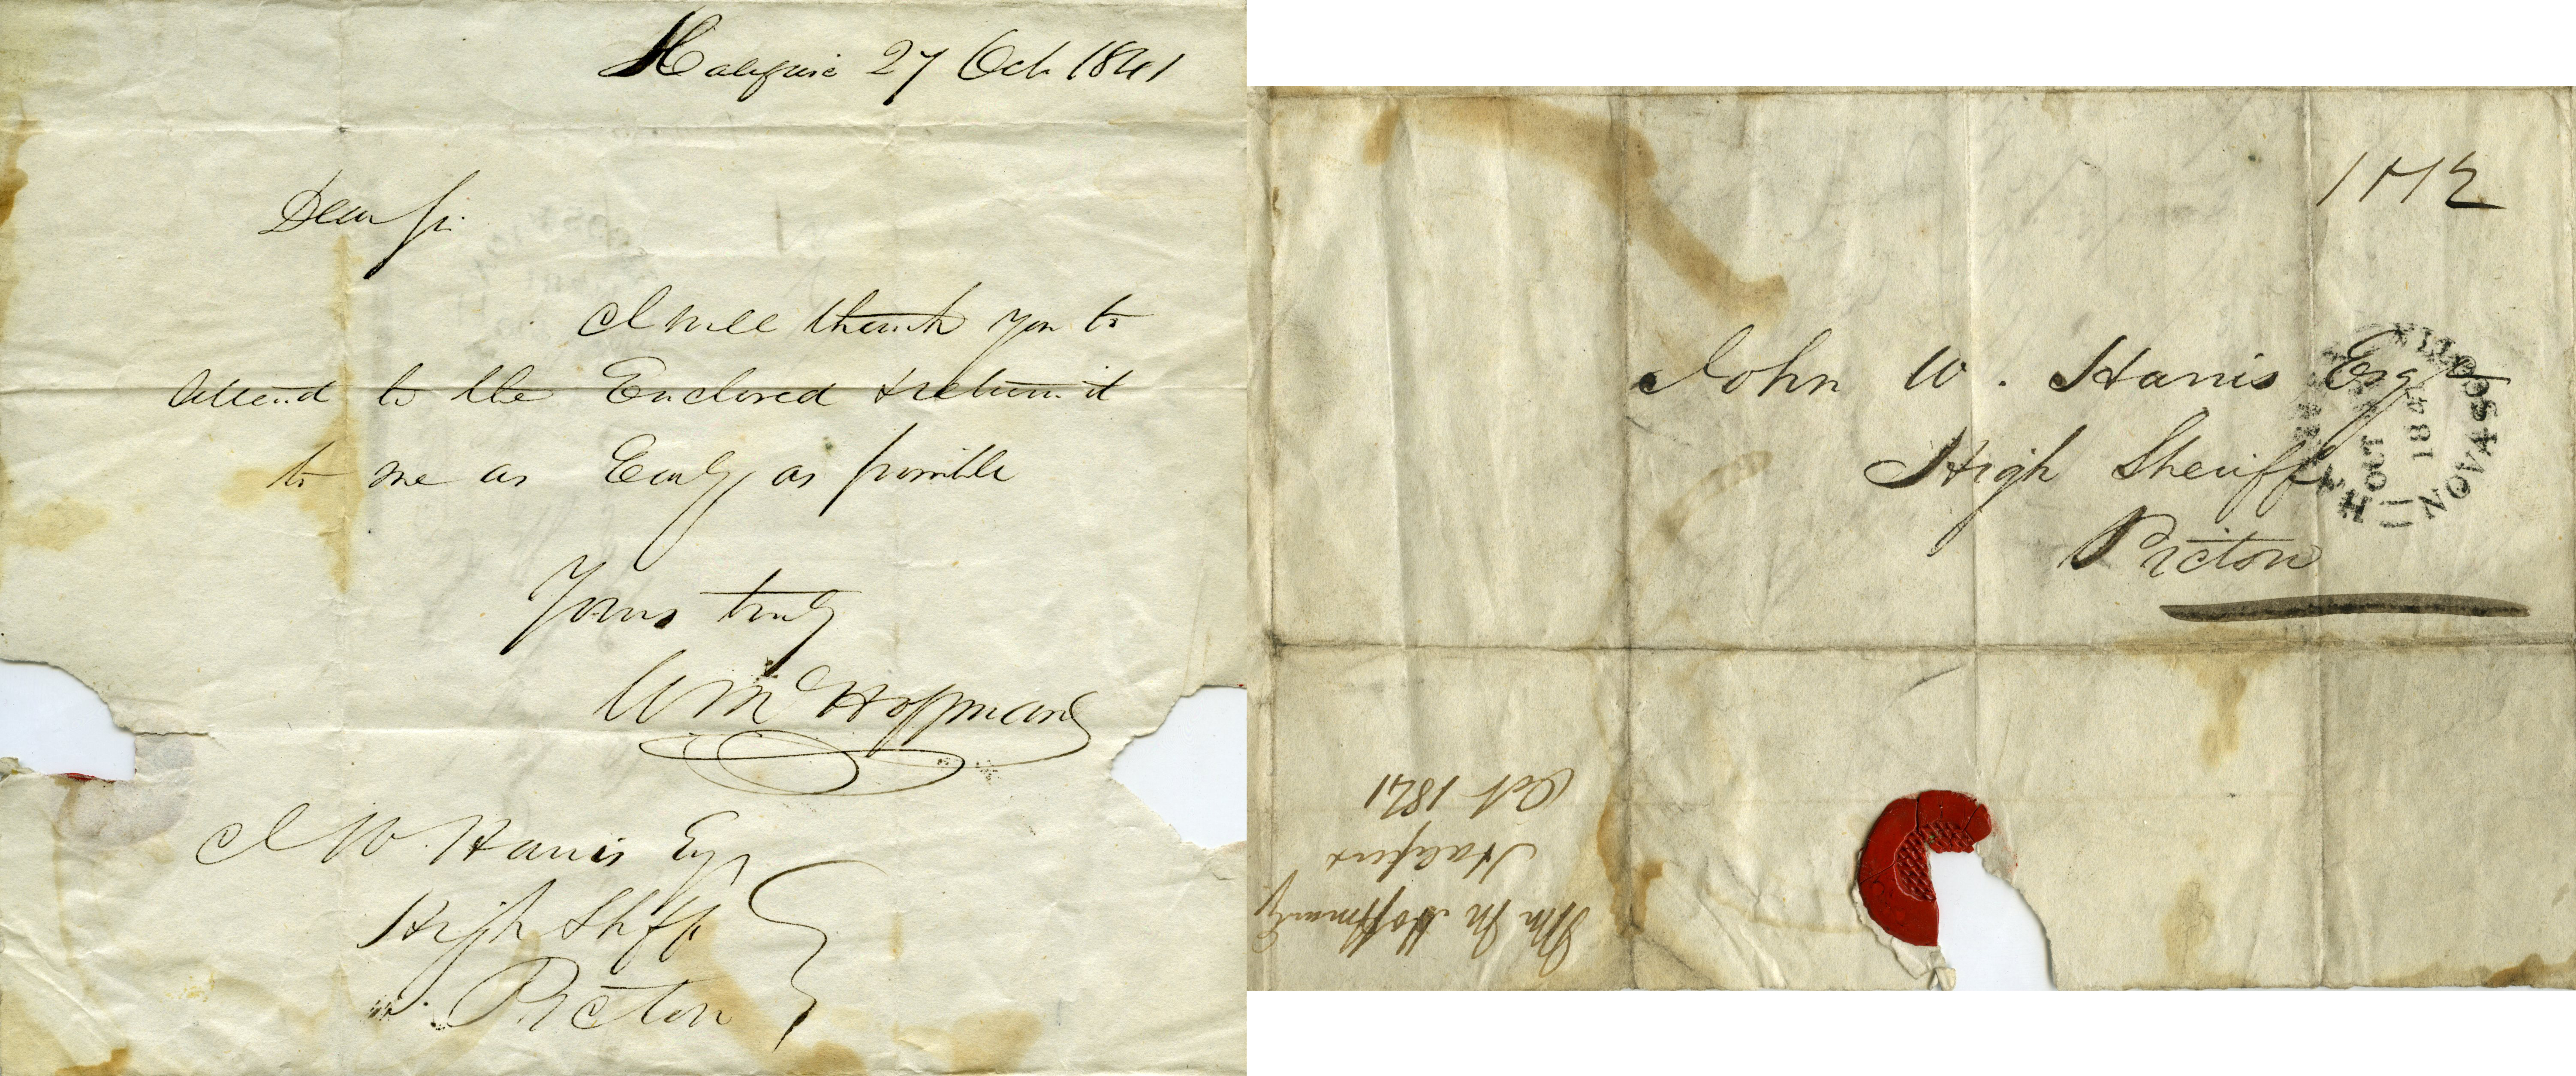 Halifax 27 Oct 1841
Dear Sir
I will thank you to
attend to the Enclosed & return it
to me as Early as possible
Yours truly
Wm Hoffman
J W. Harris Esqr
High Shff
Pictou
1 N 2
John W. Harris Esqr
High Sheriff
Pictou
OCT
184
NOVA SCOTIA
Wm M Hoffman
Halifax
Oct 1841